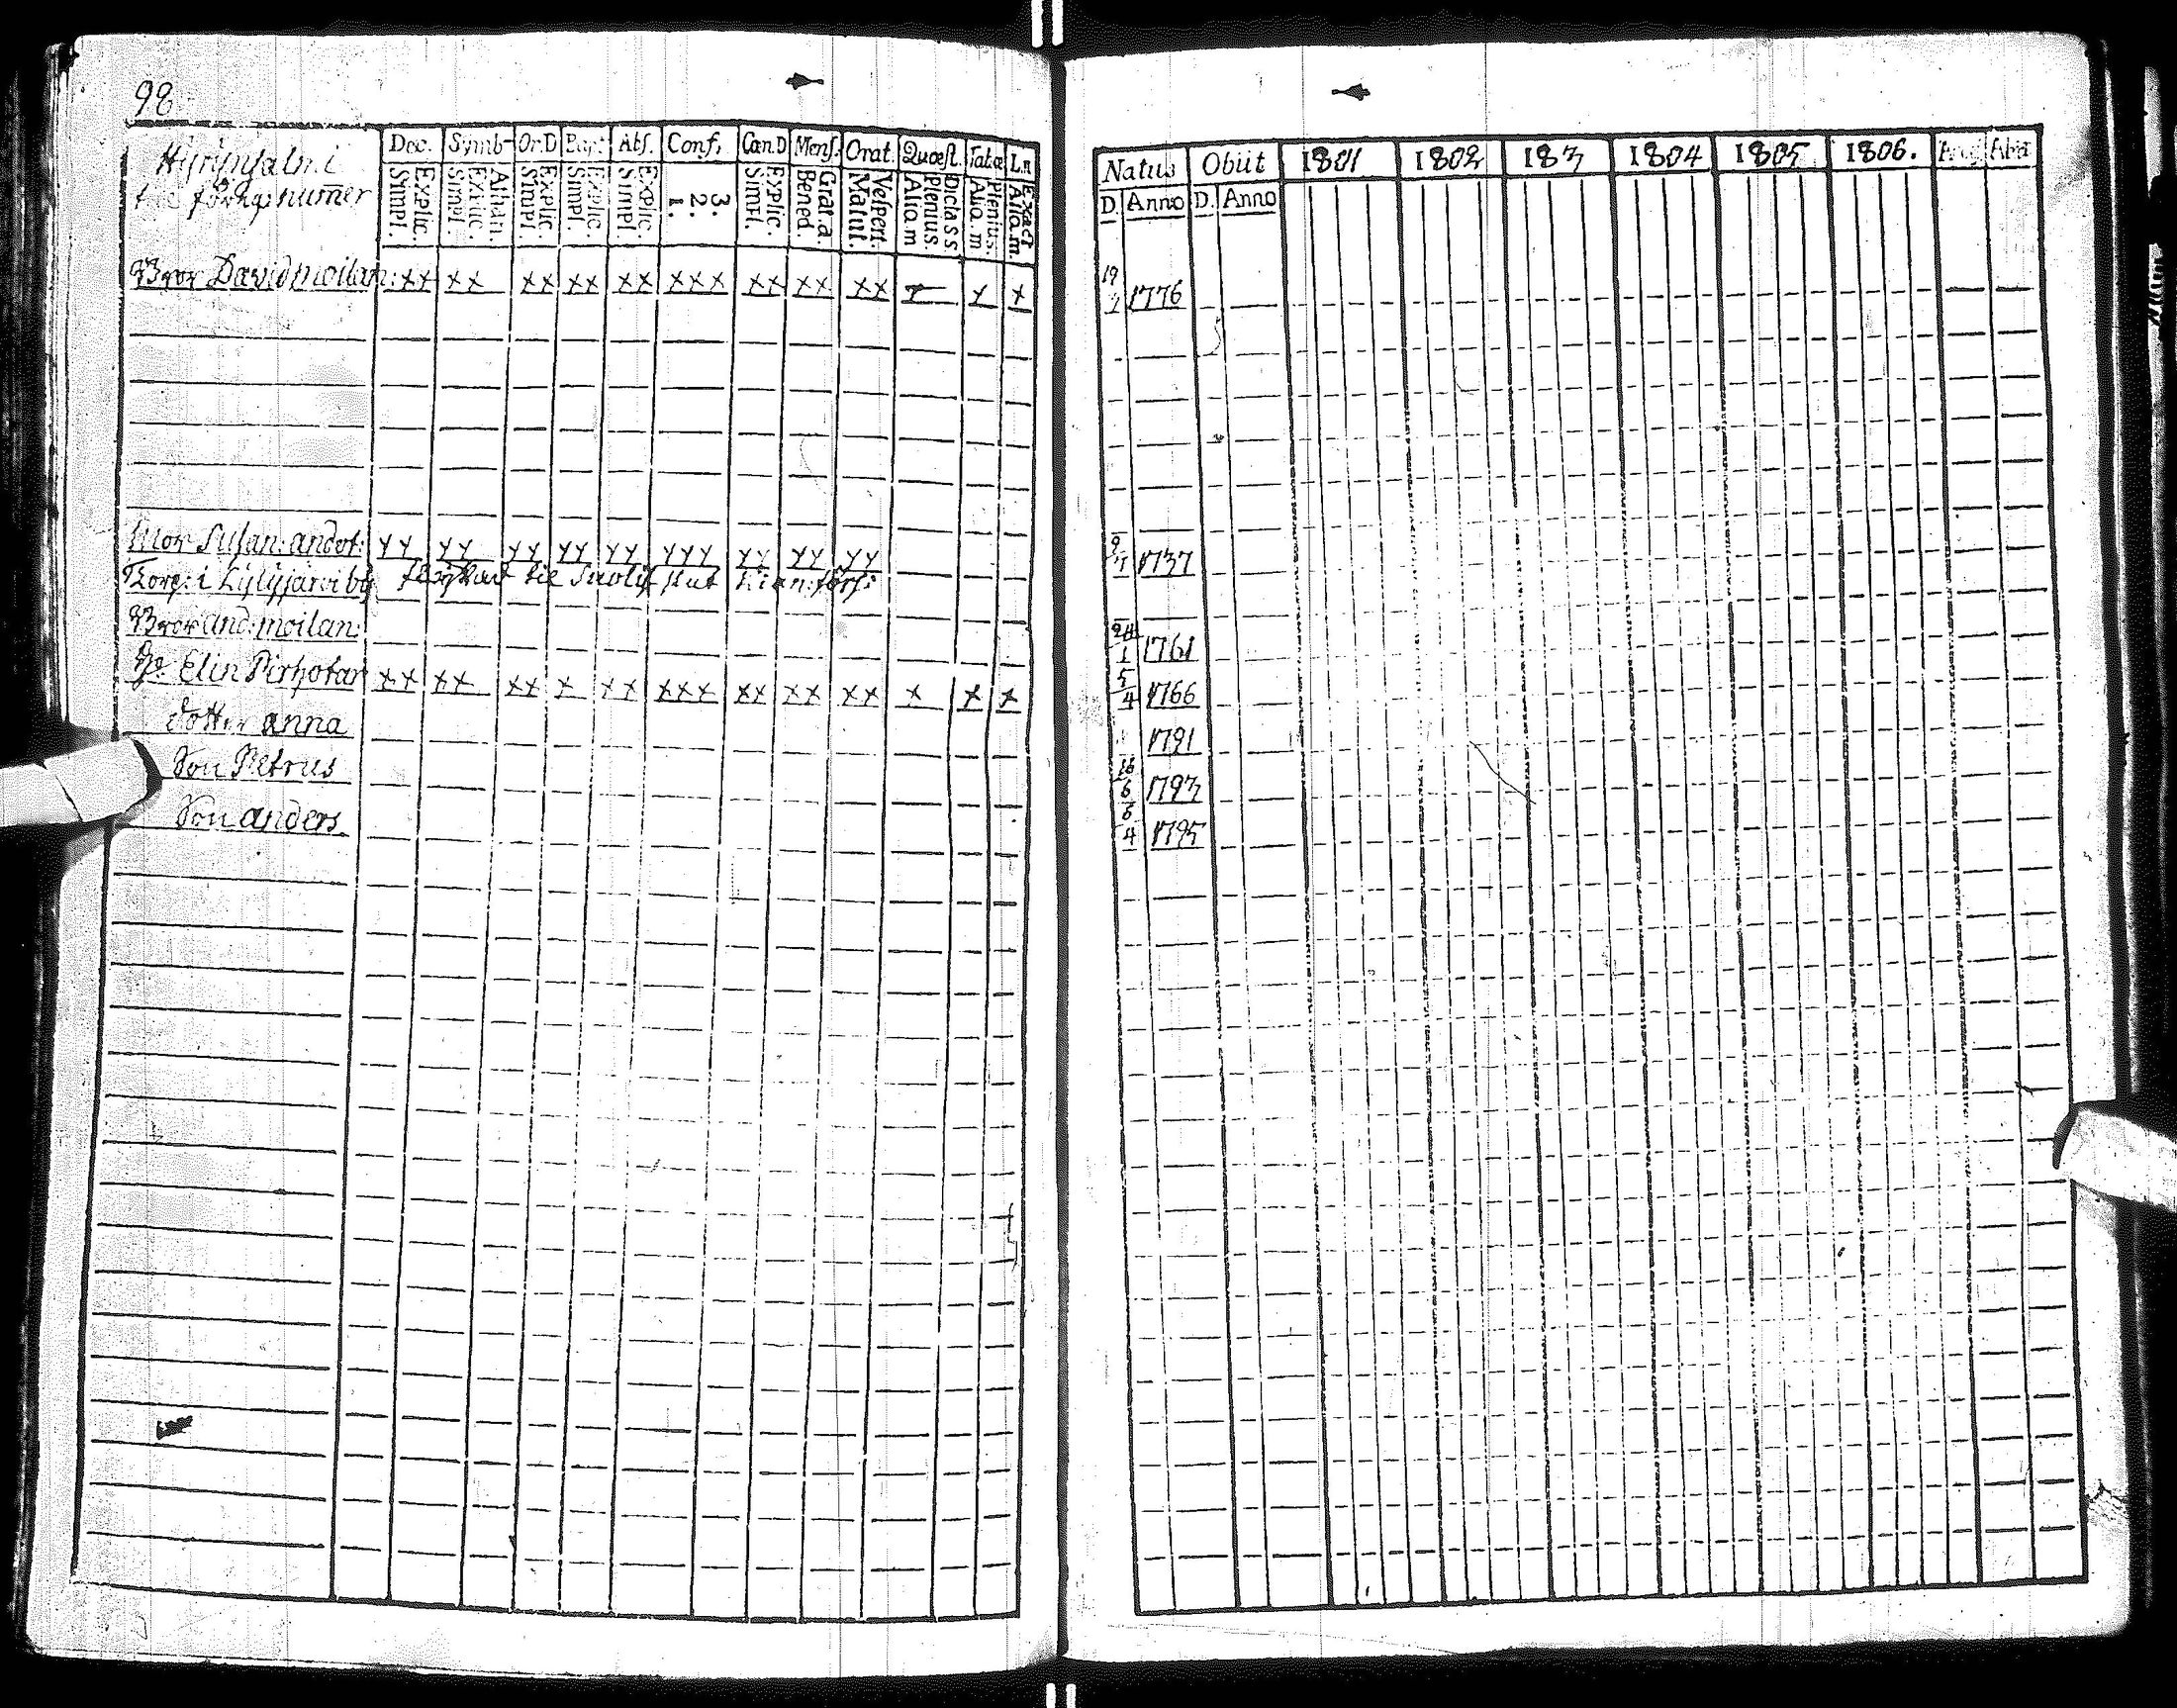 98
Hyrynsalm: i
förhg: numer
Dec. Symb. Or.D Bapt. Abs. Conf. Can.D Mens. Orat. Quæst. Tabæ L.n
Explic. Simpl. Athan. Explic. Simpl. Explic. Simpl. Explic. Simpl. Explic. Simpl. 3. 2. 1. Explic. Simpl. Grat. a. Bened. Vespert. Matut. Dicta s s. Plenius. Aliq. m Plenius. Aliq. m Exact Aliq. m.
Bror David moilan: xx xx xx xx xx xxx xx xx xx x x x
Mor Susan: andot: xx xx xx xx xx xxx xx xx xx
Torp: i Lylyjärvi by til
Bror and: moilan:
Elin Pirhotar xx xx xx x xx xxx xx xx xx x x x
dotter anna
Son Petrus
Son anders
Natus Obiit 1801 1802 183 1804 1805 1806.
D. Anno D. Anno
19 1776
9 1737
24/1 1761
5/4 1766
1791
16/6 1793
6/4 1795